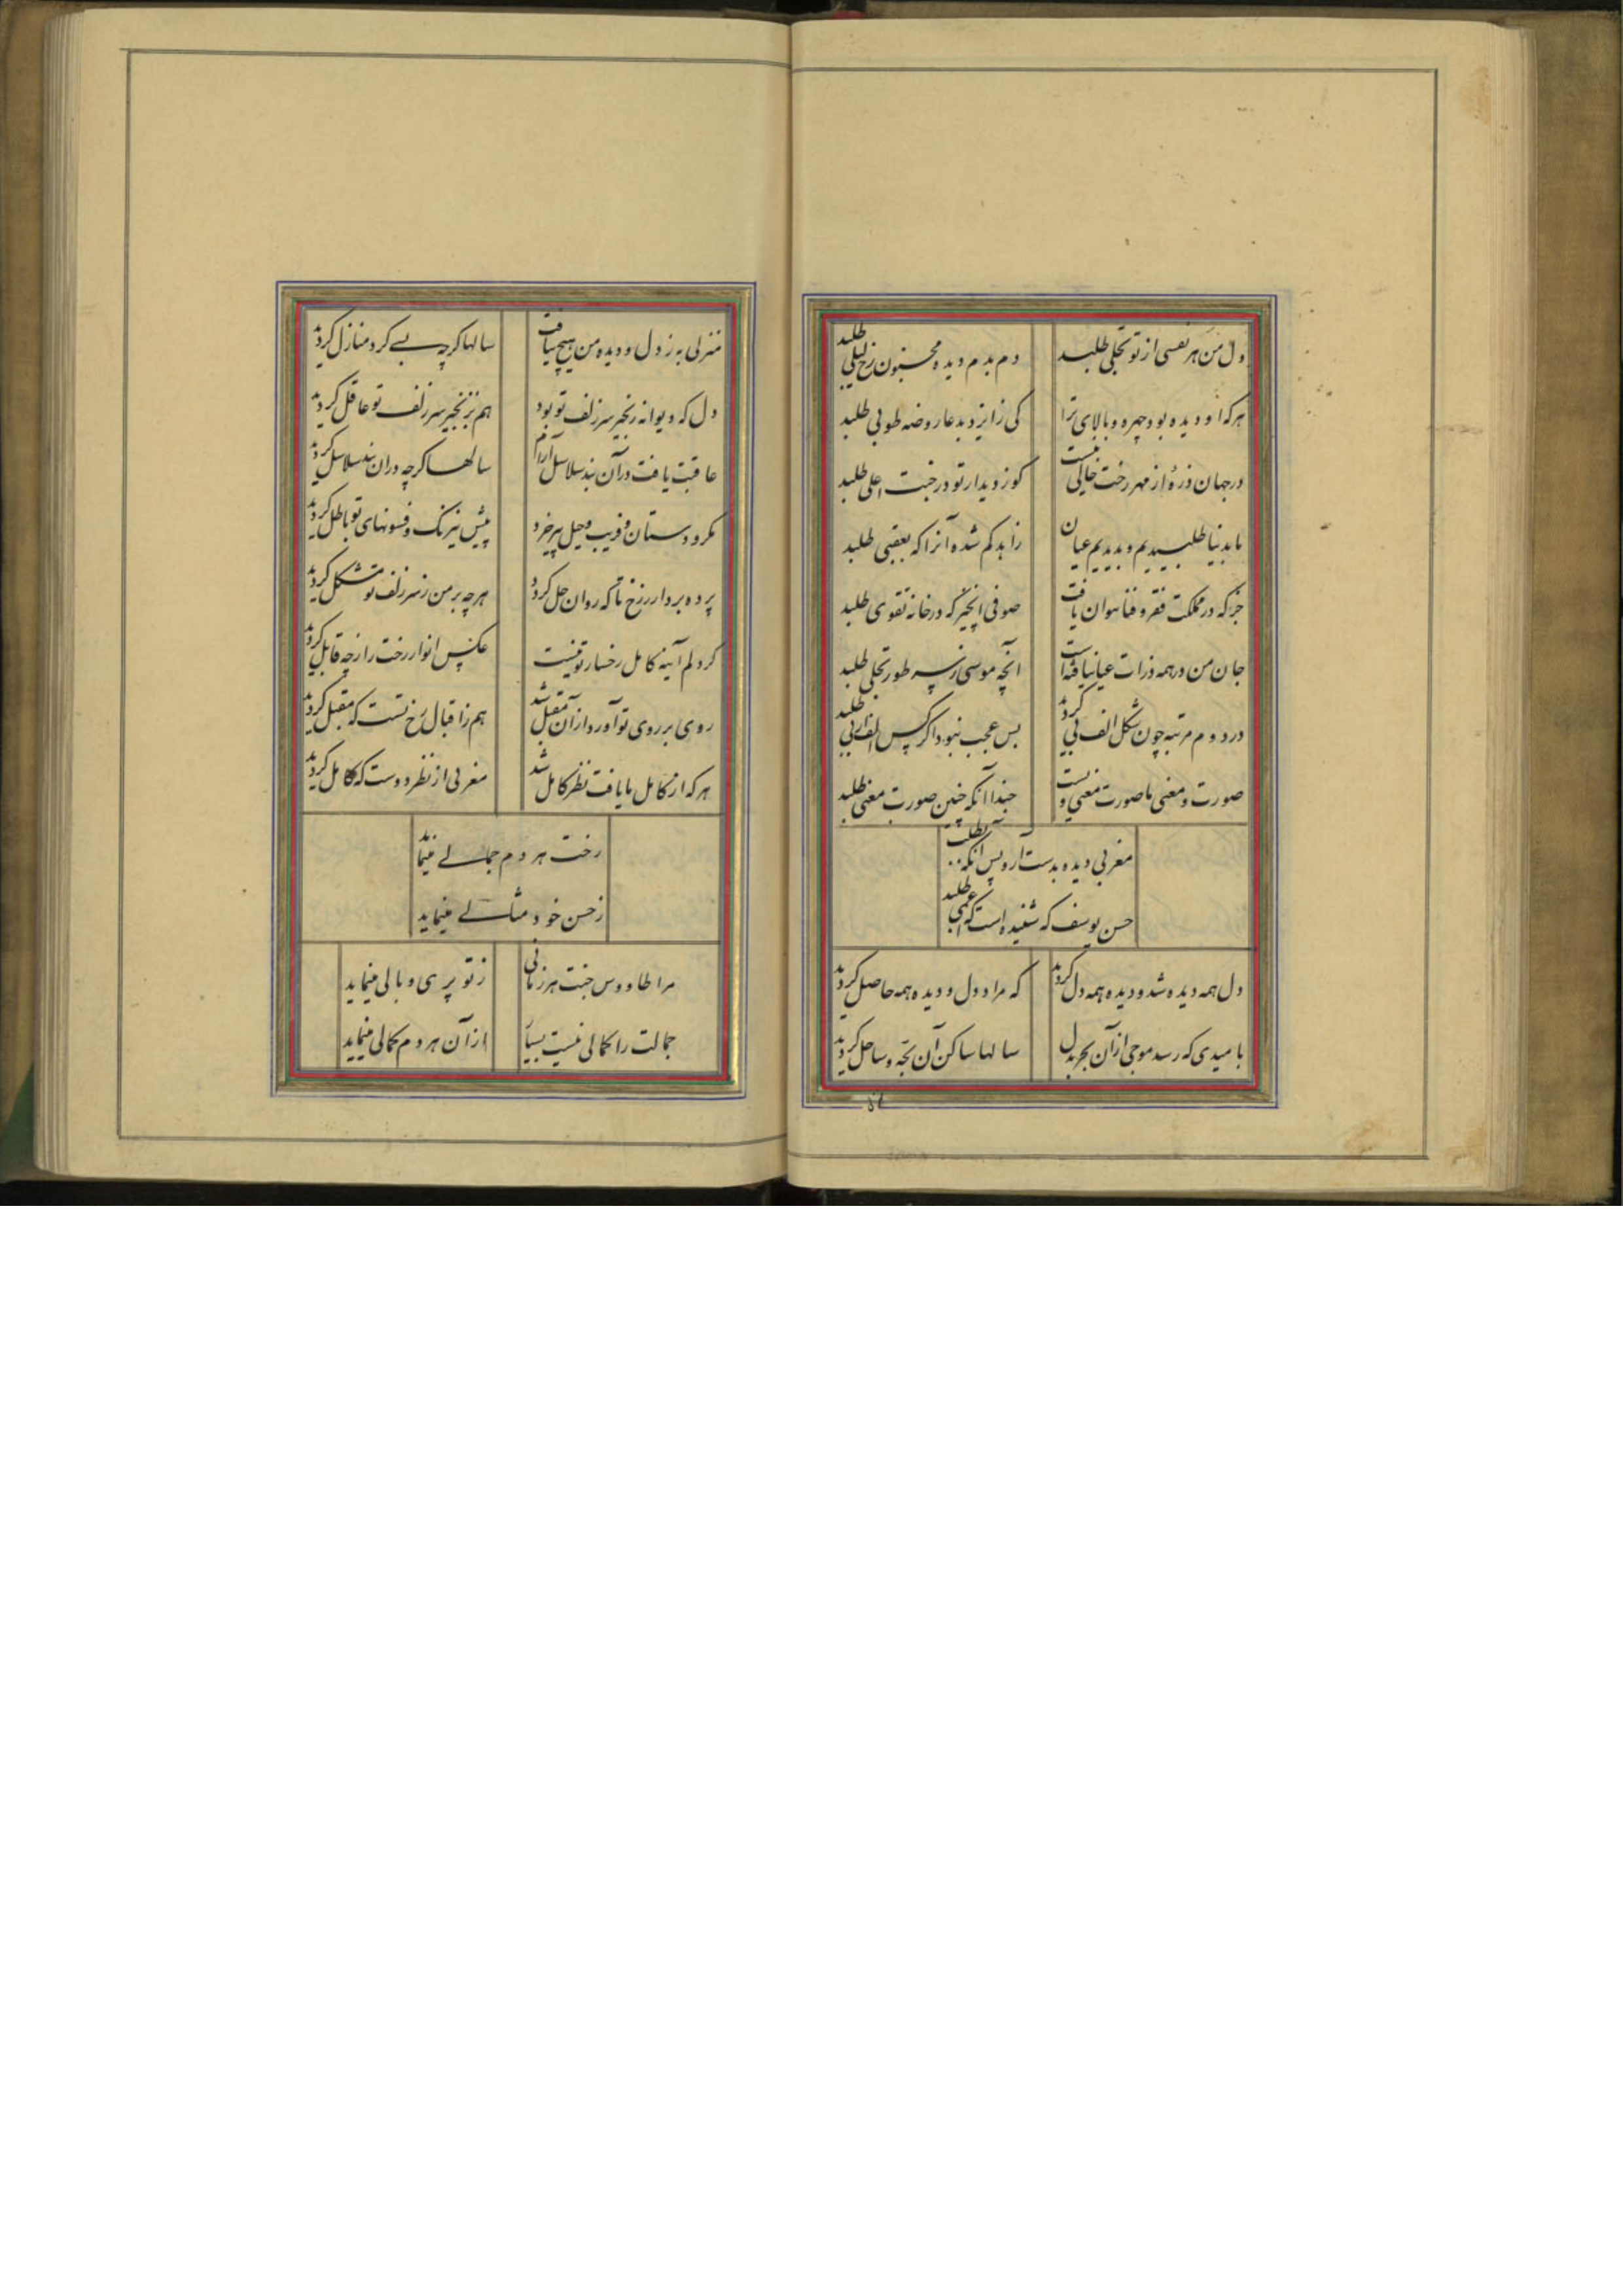 دل من هر نفسی از تو تجلی طلبد
دم بدم دیده مجنون رخ لیلی طلبد
هرکه او دیده بود چهره و بالای ترا
کی ز ایزد بدعا روضه طوبی طلبد
در جهان ذرهٔ از مهر رخت خالی نیست
کو ز دیدار تو در جنت اعلی طلبد
ما بدنیا طلبیدیم و بدیدیم عیان
زاهد کم شده آنرا که بعقبی طلبد
جز که در مملکت فقر و فنا نتوان یافت
صوفی انچیز که در خانه تقوی طلبد
جان من در همه ذرات عیان یافته است
آنچه موسی ز سر طور تجلی طلبد
در دوم مرتبه چون شکل الف بی گردد
بس عجب نبود اگر کس الف از بی طلبد
صورت و معنی ما صورت و معنی ویست
حبذا آنکه چنین صورت و معنی طلبد
مغربی دیده بدست آر و پس آنکه بطلب
حسن یوسف که شنیده است که اعمی طلبد
دل همه دیده شد و دیده همه دل گردید
که مراد دل و دیده همه حاصل گردید
بامیدی که رسد موجی از آن بحر بدل
سالها ساکن آن لجّه و ساحل گردید
منزلی به ز دل و دیده من هیچ نیافت
سالها کرچه بسے کرد منازل گردید
دل که دیوانه زنجیر سر زلف تو بود
هم بزنجیر سر زلف تو عاقل گردید
عاقبت یافت در آن بند سلاسل آرام
سالها کرچه دران بند سلاسل گردید
مکر و دستان و فریب و حیل پیر خرد
پیش نیرنک و فسونهای تو باطل گردید
پرده بردار ز رخ تا که روان حل گردد
هرچه بر من ز سر زلف تو مشکل گردید
گر دلم آینه کامل رخسار تو نیست
عکس انوار رخت را ز چه قابل گردید
روی بر روی تو آورد از آن مقبل شد
هم ز اقبال رخ تست که مقبل گردید
هرکه از کامل ما یافت نظر کامل شد
مغربی از نظر دوست که کامل گردید
رخت هر دم جمالے مینماید
ز حسن خود مثالے مینماید
مرا طاووس جنت هر زمانی
ز تو پری و بالی مینماید
جمالت را کمالی نیست بسیار
از آن هر دم کمالی مینماید